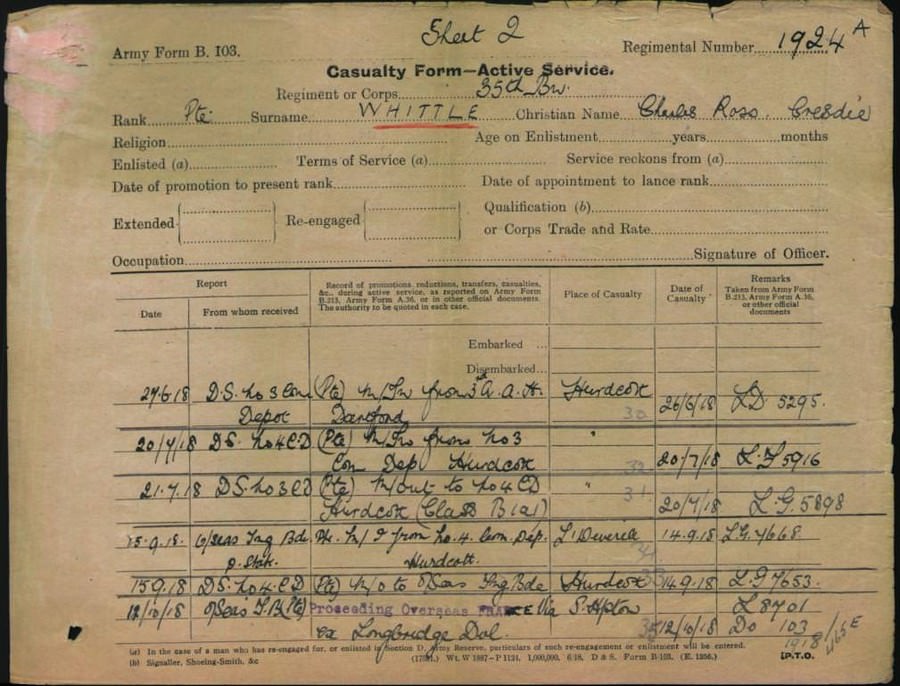 Sheet 2
Army Form B. 103.
Regimental Number 1924 A
Casualty Form—Active Service.
Regiment or Corps 35th Bn.
Rank Pte Surname WHITTLE Christian Name Charles Ross
Religion Age on Enlistment years months
Enlisted (a) Terms of Service (a) Service reckons from (a)
Date of promotion to present rank Date of appointment to lance rank
Extended Re-engaged Qualification (b)
or Corps Trade and Rate
Occupation Signature of Officer.
Report
Date
From whom received
Record of promotions, reductions, transfers, casualties, &c., during active service, as reported on Army Form B.213, Army Form A.36, or in other official documents. The authority to be quoted in each case.
Place of Casualty
Date of Casualty
Remarks
Taken from Army Form B.213, Army Form A.36, or other official documents
Embarked ...
Disembarked...
27.6.18 D.S. No 3 Com (Pte) M/In from 3rd A.A.H. Hurdcott
Depot Dartford 30 26/6/18 LD 5295.
20/7/18 DS. No 4 CD (Pte) M/In from No 3 "
Com Dep Hurdcott 20/7/18 5916
21.7.18 D.S. No 3 CD (Pte) M/out to No 4 CD "
Hurdcott (Class B1a1) 31 20/7/18 L.G. 5898
15.9.18. O/seas Tng Bde Pte. M/I from No. 4. Com. Dep. L'Deverill 14.9.18 L.G. 7668
Hurdcott.
15.9.18 DS. No 4 CD (Pte) M/O to O/Seas Tng Bde Hurdcott 14.9.18 L.G. 7653.
12/10/18 O/Seas T.B. (Pte) Proceeding Overseas FRANCE Via S'Hpton L 8701
ex Longbridge Dvl. 35 12/10/18 Do 103
1918
(a) In the case of a man who has re-engaged for, or enlisted in Section D, Army Reserve, particulars of such re-engagement or enlistment will be entered.
(b) Signaller, Shoeing-Smith, &c
Wt. W 1887—P 1124. 1,000,000. 6/18. D & S. Form B.103. (E. 1256.)
[P.T.O.